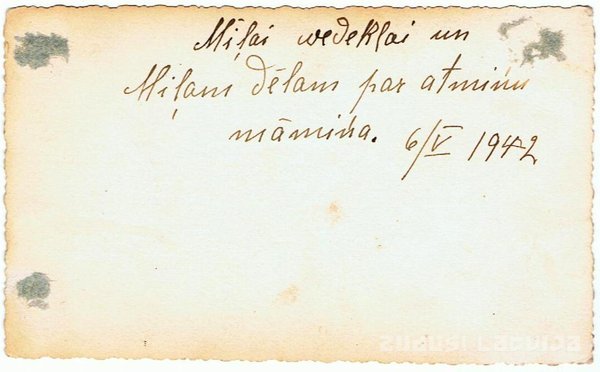 Miļai wedekļai un
Miļam dēlam par atmiņu
māmiņa. 6/V 1942
zudusi Latvija